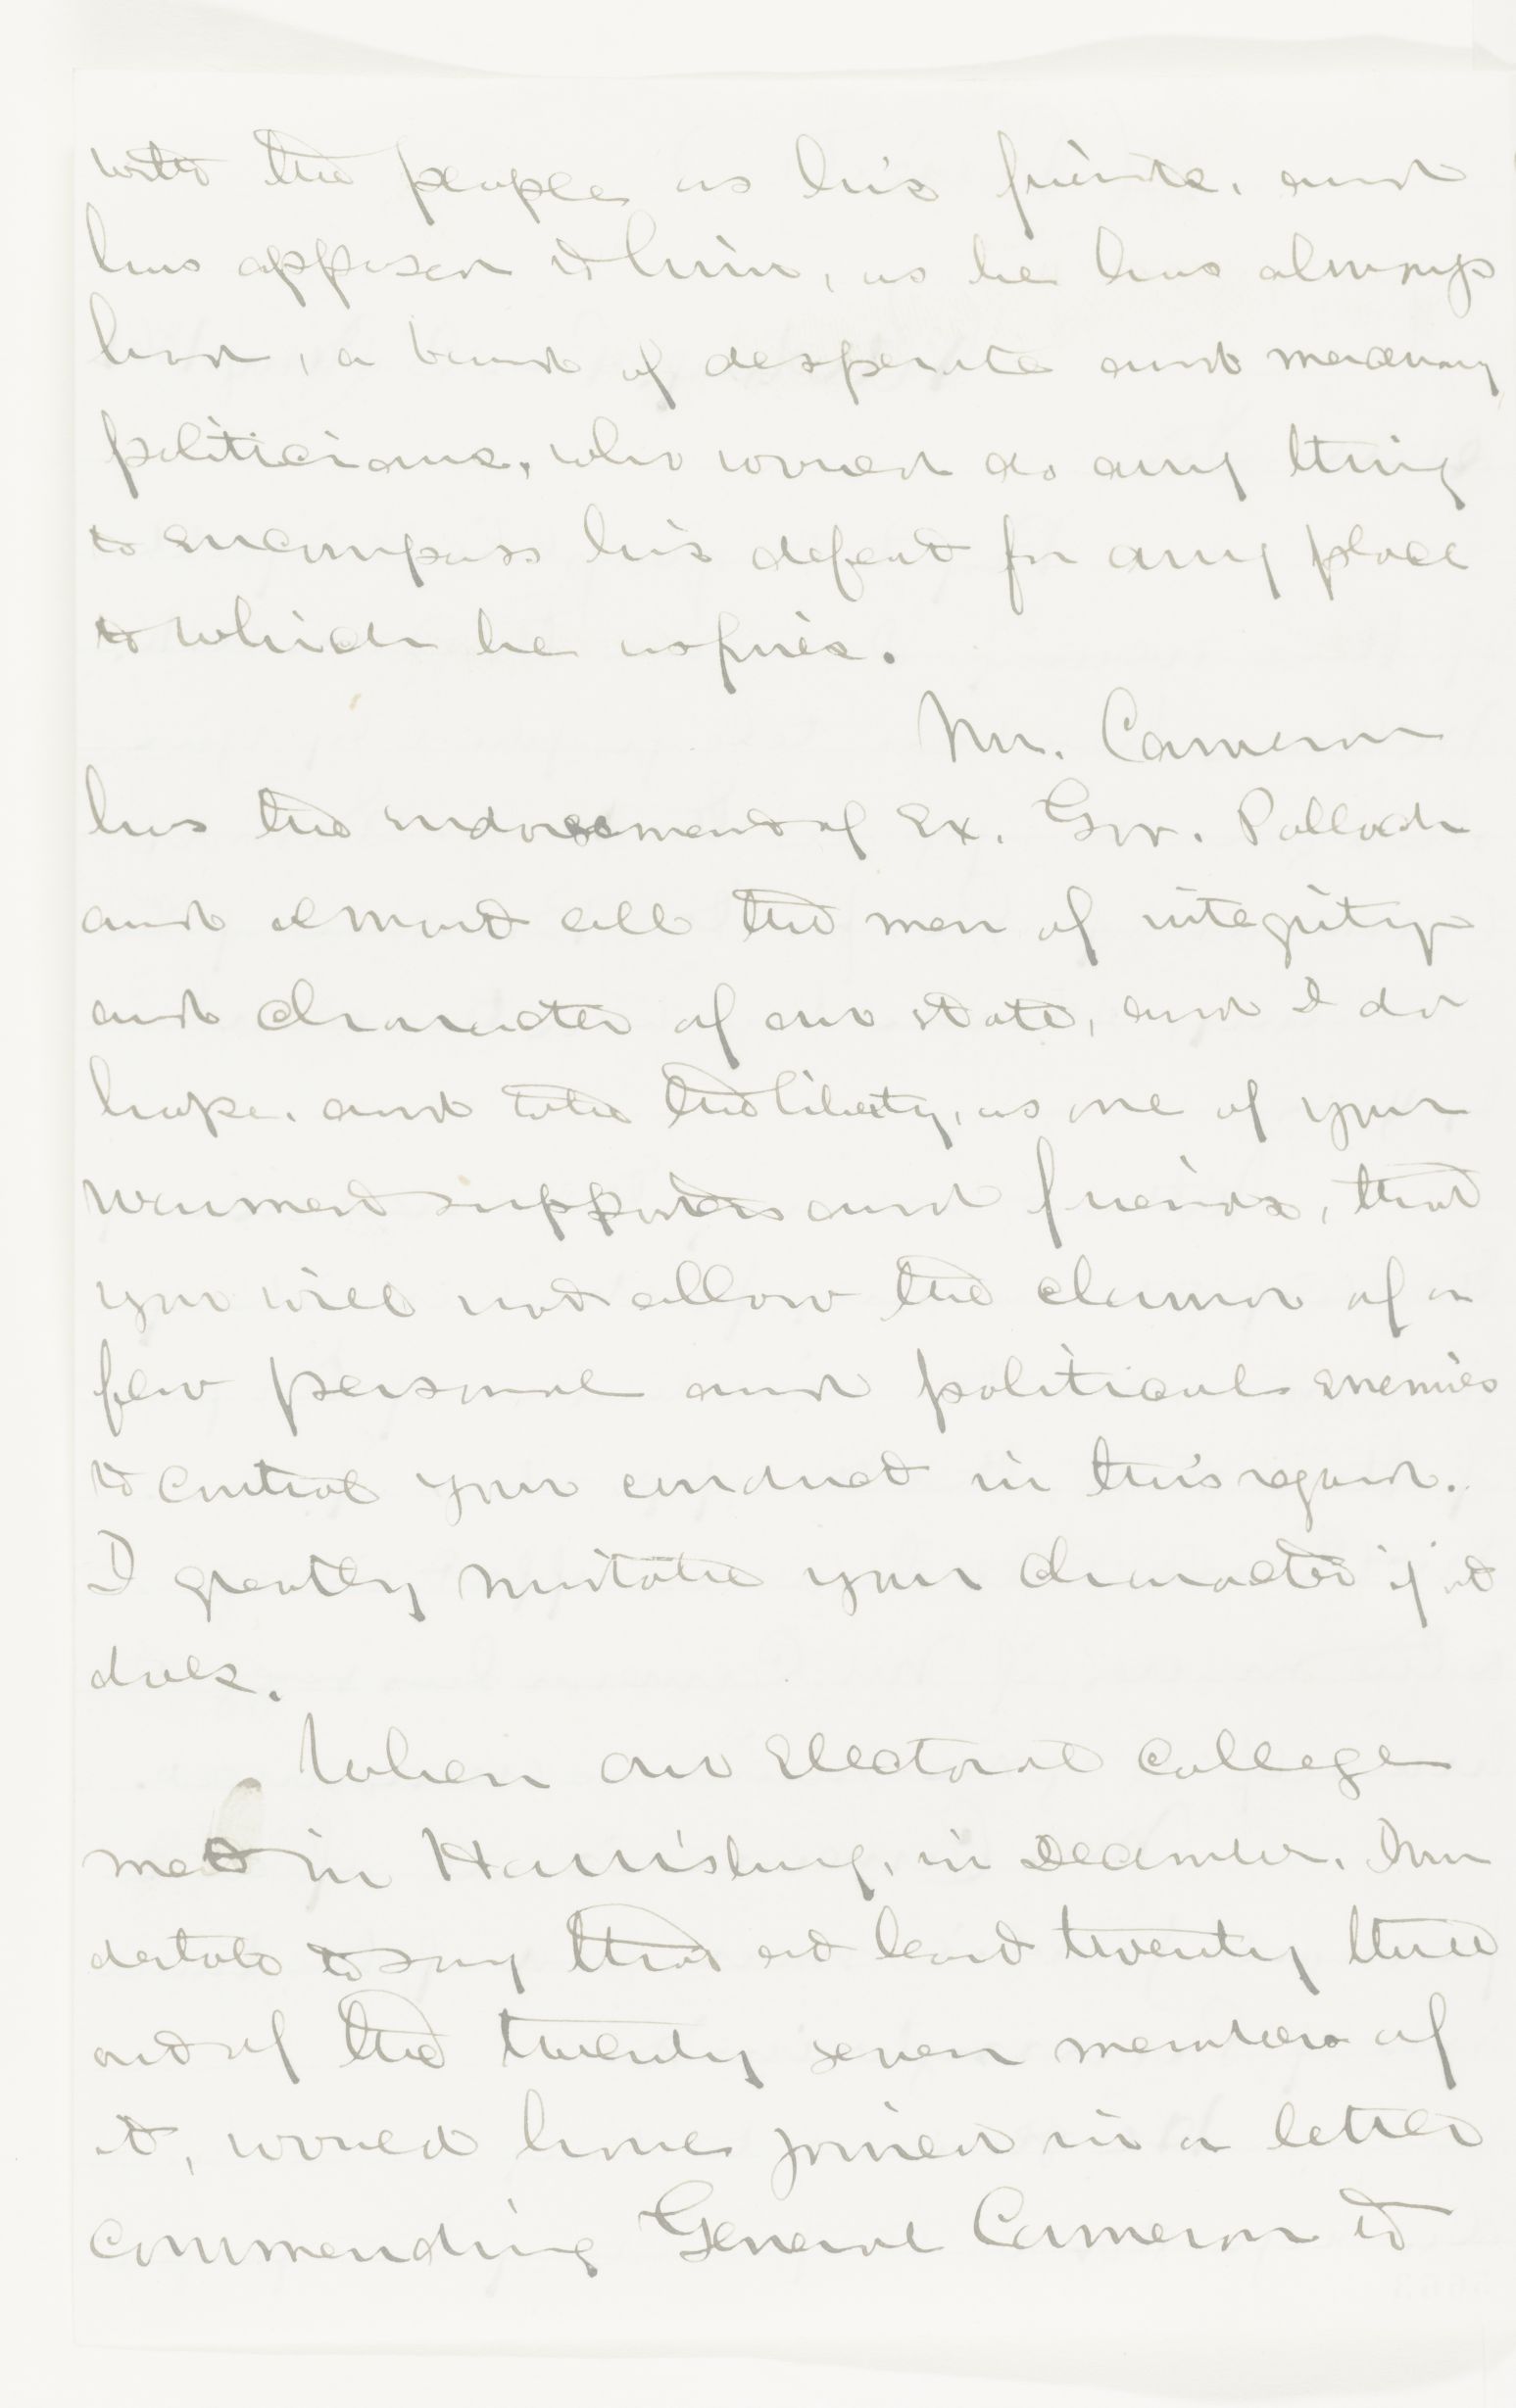 with the people as his friends, and
has opposed to him, as he has always
had, a band of desperate and mercenary
politicians, who would do any thing
to encompass his defeat for any place
to which he aspires.
Mr. Cameron
has the endorsement of Ex. Gov. Pollock
and almost all the men of integrity
and character of our state, and I do
hope, and take the liberty, as one of your
warmest supporters and friends, that
you will not allow the clamor of a
few personal and political enemies
to control your conduct in this regard.
I greatly mistake your character if it
does.
When our Electoral College
met in Harrisburg, in December, I un
dertake to say that at least twenty three
out of the twenty seven members of
it, would have joined in a letter
commending General Cameron to